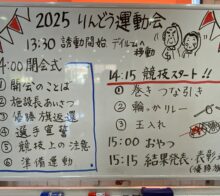 2025 りんどう運動会
13:30 誘動開始 デイルームの移動
14:00 開会式
① 開会のことば
② 施設長あいさつ
③ 優勝旗返還
④ 選手宣誓
⑤ 競技上の注意
⑥ 準備運動
14:15 競技スタート!!
① 巻きつな引き
② 輪っかリレー
③ 玉入れ
15:00 おやつ
15:15 結果発表・表彰
(優勝